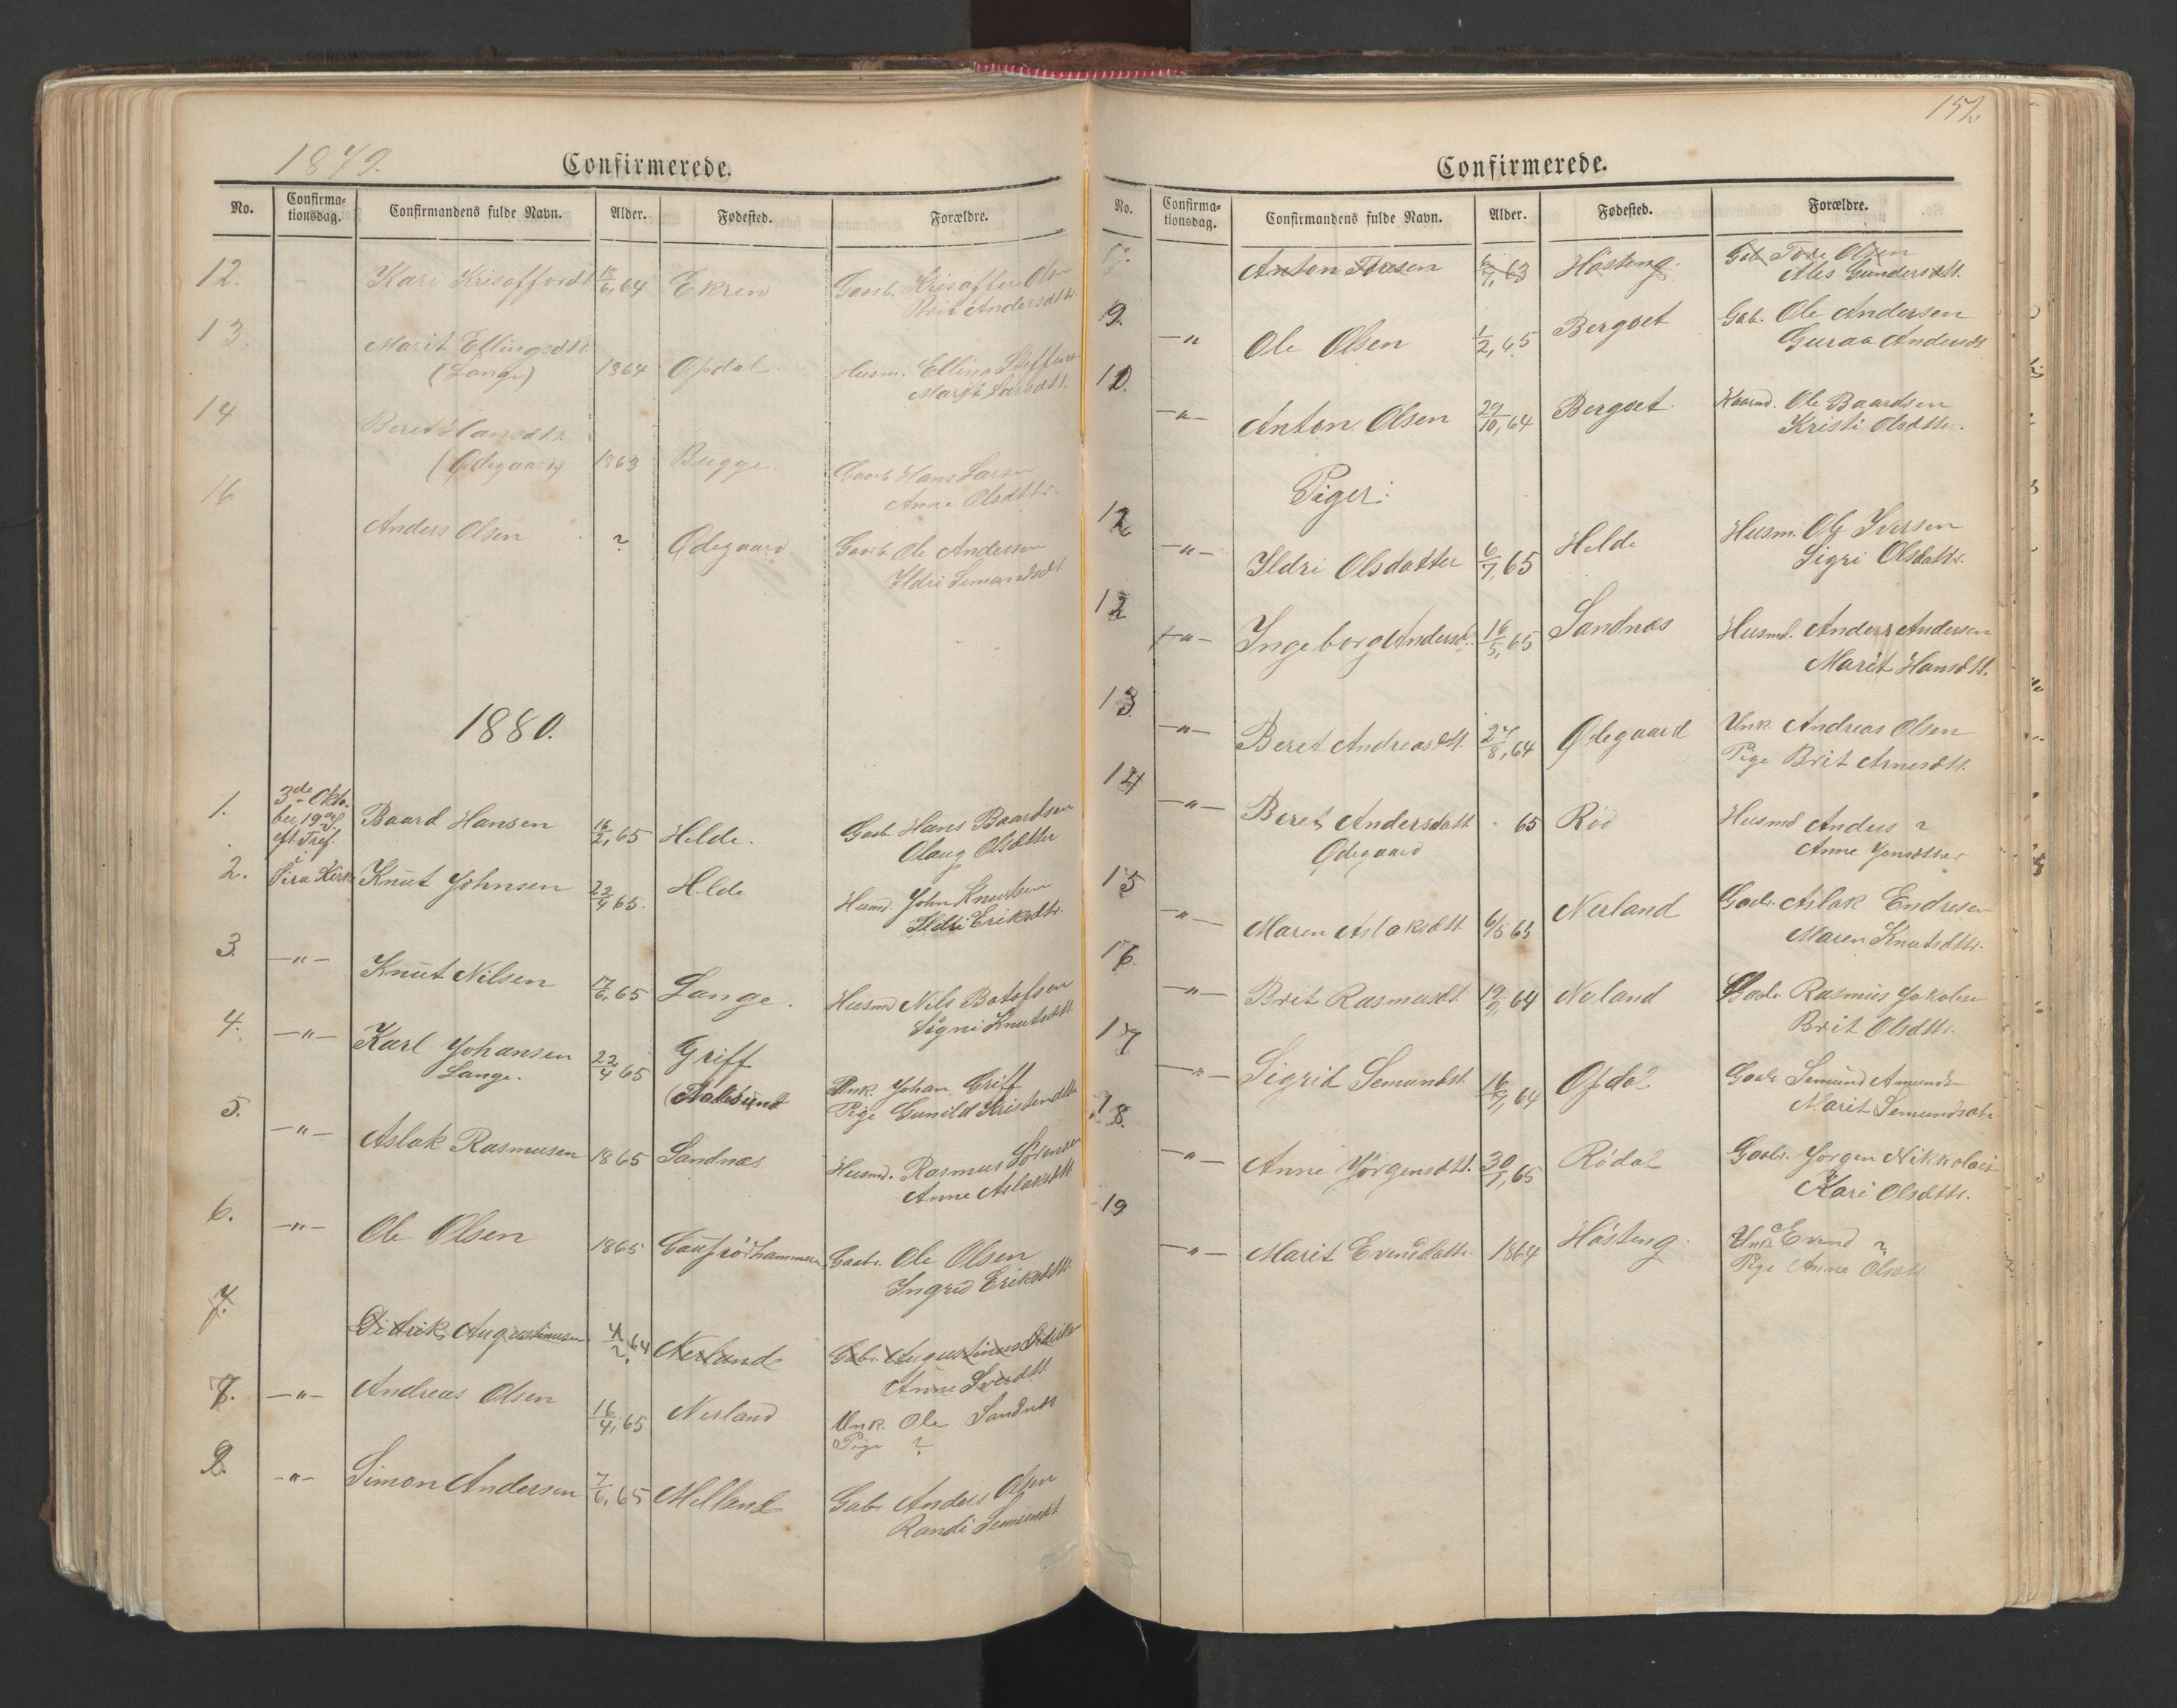 1879.
Confirmerede.
No. Confirma-tionsdag. Confirmandens fulde Navn. Alder. Fødested. Forældre.
12. - Kari Krisoffersdt 6, 64 Ekren Gaab. Krisoffer Ols
Brit Andersdtr.
13. Marit Ellingsdtt.
(Lange) 1864 Opdal. Husm. Elling Steffens
Marit Larsdtt.
14 Beret Hansdtr.
(Ødegaard) 1863 Bugge. Gaarb. Hans Larsen
Anne Olsdttr.
16 Anders Olsen ? Ødegaard Gaarb. Ole Andersen
Ildri Semundsdt.
1880.
1. 3de Okto-
ber, 19de S.
eft. Tref. Baard Hansen 16/2, 65 Helde. Gaab. Hans Baardsen
Olaug Olsdtter
2. i Sira Kirke Knut Johnsen 22/4 65. Helde Husmd. John Knutsen
Ildri Eriksdtr.
3. —"— Knut Nilsen 17/6, 65 Lange. Husmd Nils Botolfsen
Signi Knutsdtt.
4. —"— Karl Johansen
Lange. 22/4 65 Griff
(Aalesund Unk. Johan Griff
Pige Gunild Kristensdtr
5. —"— Aslak Rasmusen 1865 Sandnæs Husmd. Rasmus Sörensen
Anne Aslaksdtt
6. —"— Ole Olsen 1865 Gaab. Ole Olsen
Ingrid Eriksdttr.
7. Didrik Augustinusen 4/2 64 Nerland Gabr. Augustinus Didriks
Anne Iversdtt
8. —"— Andreas Olsen 16/4, 65 Nerland Unk. Ole Sandnes
Pige ?
9. —"— Simon Andersen 7/6, 65 Melland Gabr Anders Olsen
Randi Semundsdt
152.
Confirmerede.
No. Confirma-tionsdag. Confirmandens fulde Navn. Alder. Fødested. Forældre.
Anton Toresen 6/7, 63 Håsteng. Gab. Tore Olsen
Ales Gundersdtt.
9. —"— Ole Olsen 1/2, 65 Bergset Gab. Ole Andersen
Guraa Andersdt
10. —"— Anton Olsen 29/10, 64 Bergset. Kaarmd. Ole Baardsen
Kristi Olsdtter.
Piger:
12 —"— Ildri Olsdatter 6/7, 65 Helde Husm. Ole Iversen
Sigri Olsdattr.
12 —"— Ingeborg Andersd. 16/5, 65 Sandnæs Husmd. Anders Andersen
Marit Hansdtt.
13 —"— Beret Andreasdtt. 27/8, 64 Ødegaard Unk. Andreas Olsen
Pige Brit Arnesdtt.
14 —"— Beret Andersdatt
Ødegaard 65 Rød Husmd Anders ?
Anne Jonsdtter
15 —"— Maren Aslaksdtt. 6/5 65 Nerland Gaabr. Aslak Endresen
Maren Knutsdttr.
16 —"— Brit Rasmusdt. 19/9, 64 Nerland Gaabr. Rasmus Jakobsen
Brit Olsdttr.
17 —"— Sigrid Semundst. 16/9, 64 Opdal Gaabr Semund Amunds
Marit Semundsdt
18. —"— Anne Jörgensdtt. 30/7, 65 Rödal Gaabr. Jörgen Nikkolais
Kari Olsdttr.
19 —"— Marit Evensdattr. 1864 Håsteng. Unk. Evend ?
Pige Anne Olsdtr.